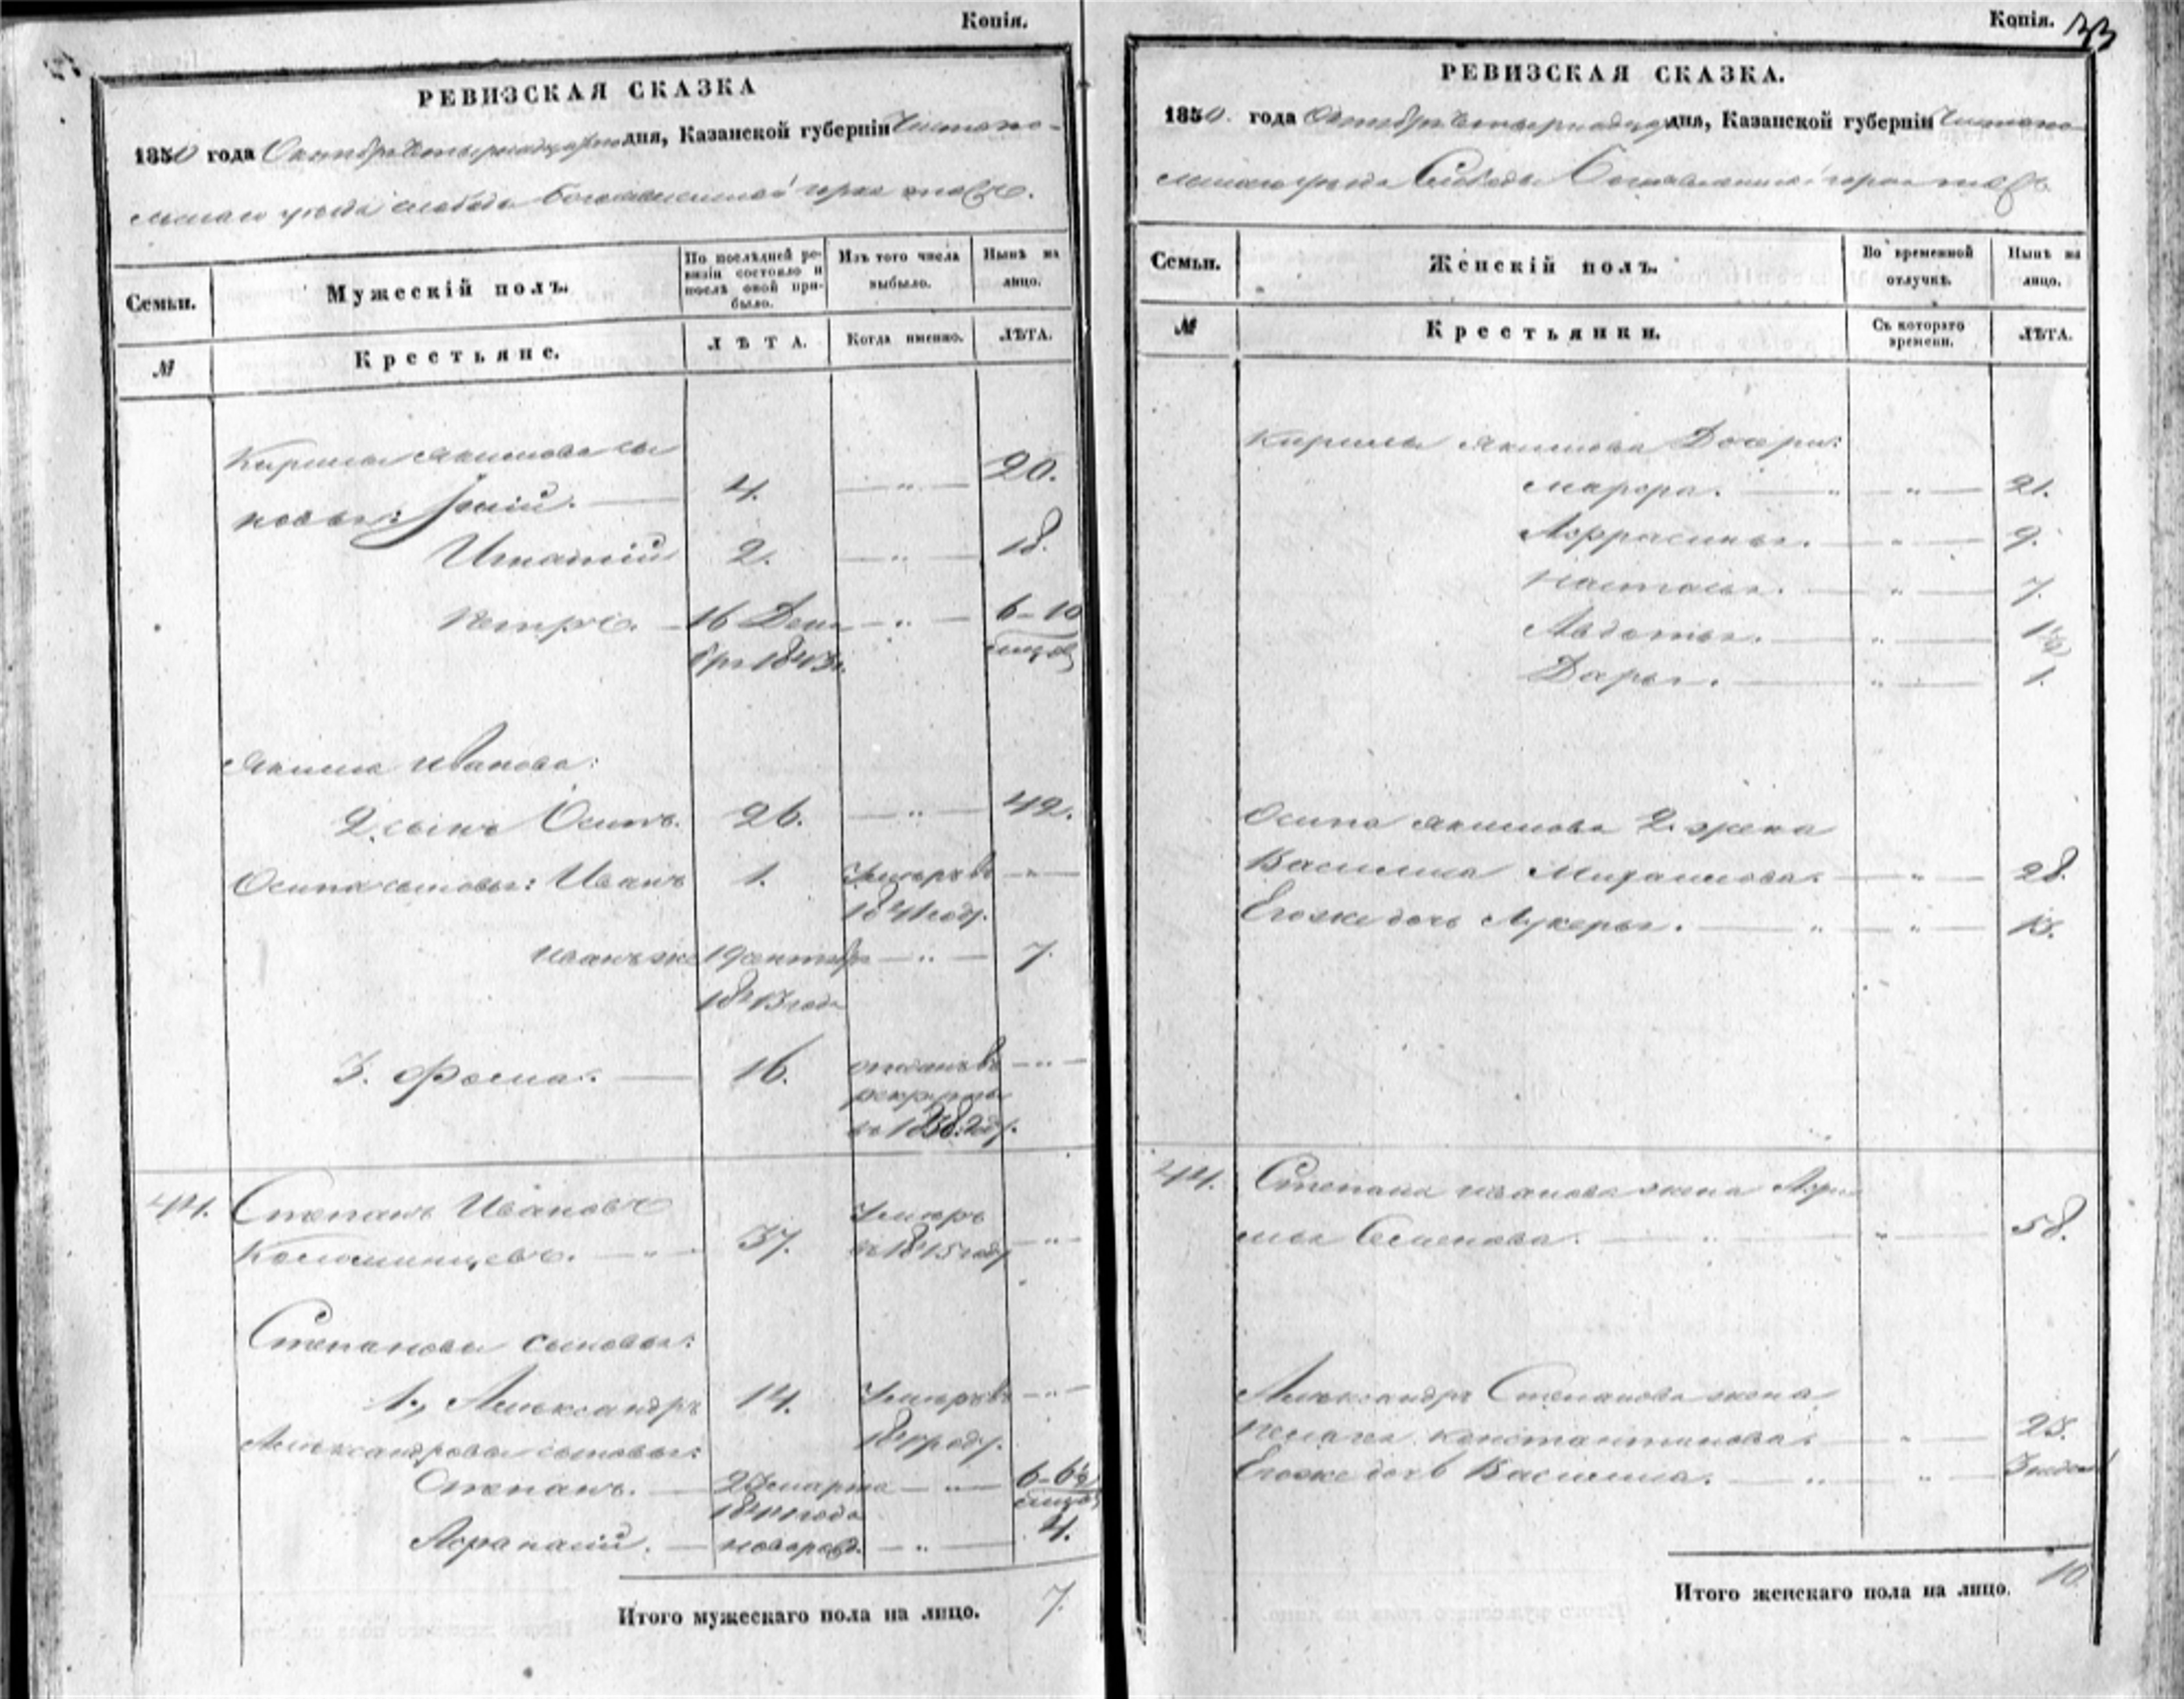 Копія.
РЕВИЗСКАЯ СКАЗКА
1850 года Октября четырнадцатого дня, Казанской губерніи Чистопо-
льскаго уѣзда слободы Богоявленской горка тожъ.
Семьи.
Мужескій полъ.
По послѣдней ре-
визіи состояло и
послѣ оной при-
было.
Изъ того числа
выбыло.
Нынѣ на
лицо.
№
Крестьяне.
ЛѢТА.
Когда именно.
ЛѢТА.
Кирилы Якимова сы
новья: 4. — " — 20.
Игнатій 2. — " — 18.
Петръ. — 16 Дека — " — 6-10
бря 1843 г. мѣсяц
Якима Иванова:
2. сынъ Осипъ. 26. — " — 42.
Осипа сыновья: Иванъ 1. Умеръ въ — " —
1841 году.
Иванъ же 19 сентябр — " — 7.
1843 года
3. Фома. — 16. отданъ въ — " —
рекруты
в 1838 году.
44. Степанъ Ивановъ
37. Умеръ — " —
в 1845 году
Степановы сыновья:
1., Александръ 14. Умеръ въ — " —
году.
Александровы сыновья:
Степанъ. — марта — " — 6-6½
1844 года мѣсяц
Афанасій. — новорож. — " — 4.
Итого мужескаго пола на лицо. 7.
Копія. 33
РЕВИЗСКАЯ СКАЗКА.
1850. года Октября четырнадцаго дня, Казанской губерніи Чистопо
льскаго уѣзда Слободы Богоявленской горка тожъ
Семьи.
Женскій полъ.
Во временной
отлучкѣ.
Нынѣ на
лицо.
№
Крестьянки.
Съ котораго
времени.
ЛѢТА.
Кирилы Якимова Дочери:
Марфа. — " — " — 21.
Афрасинья. — " — 9.
Настасья. — " — 7.
Авдотья. — " — 1½
Дарья. — " — 1.
Осипа Якимова 2. жена
Василиса Михайлова. — " — 28.
Его же дочь Лукерья. — " — " — 15.
44. Степана Иванова жена Агри
Семенова. — " — " — 58.
Александра Степанова жена
Пелагея Константинова. — " — 25.
Его же дочь Василиса. — " — " — 3 недел
Итого женскаго пола на лицо. 10.